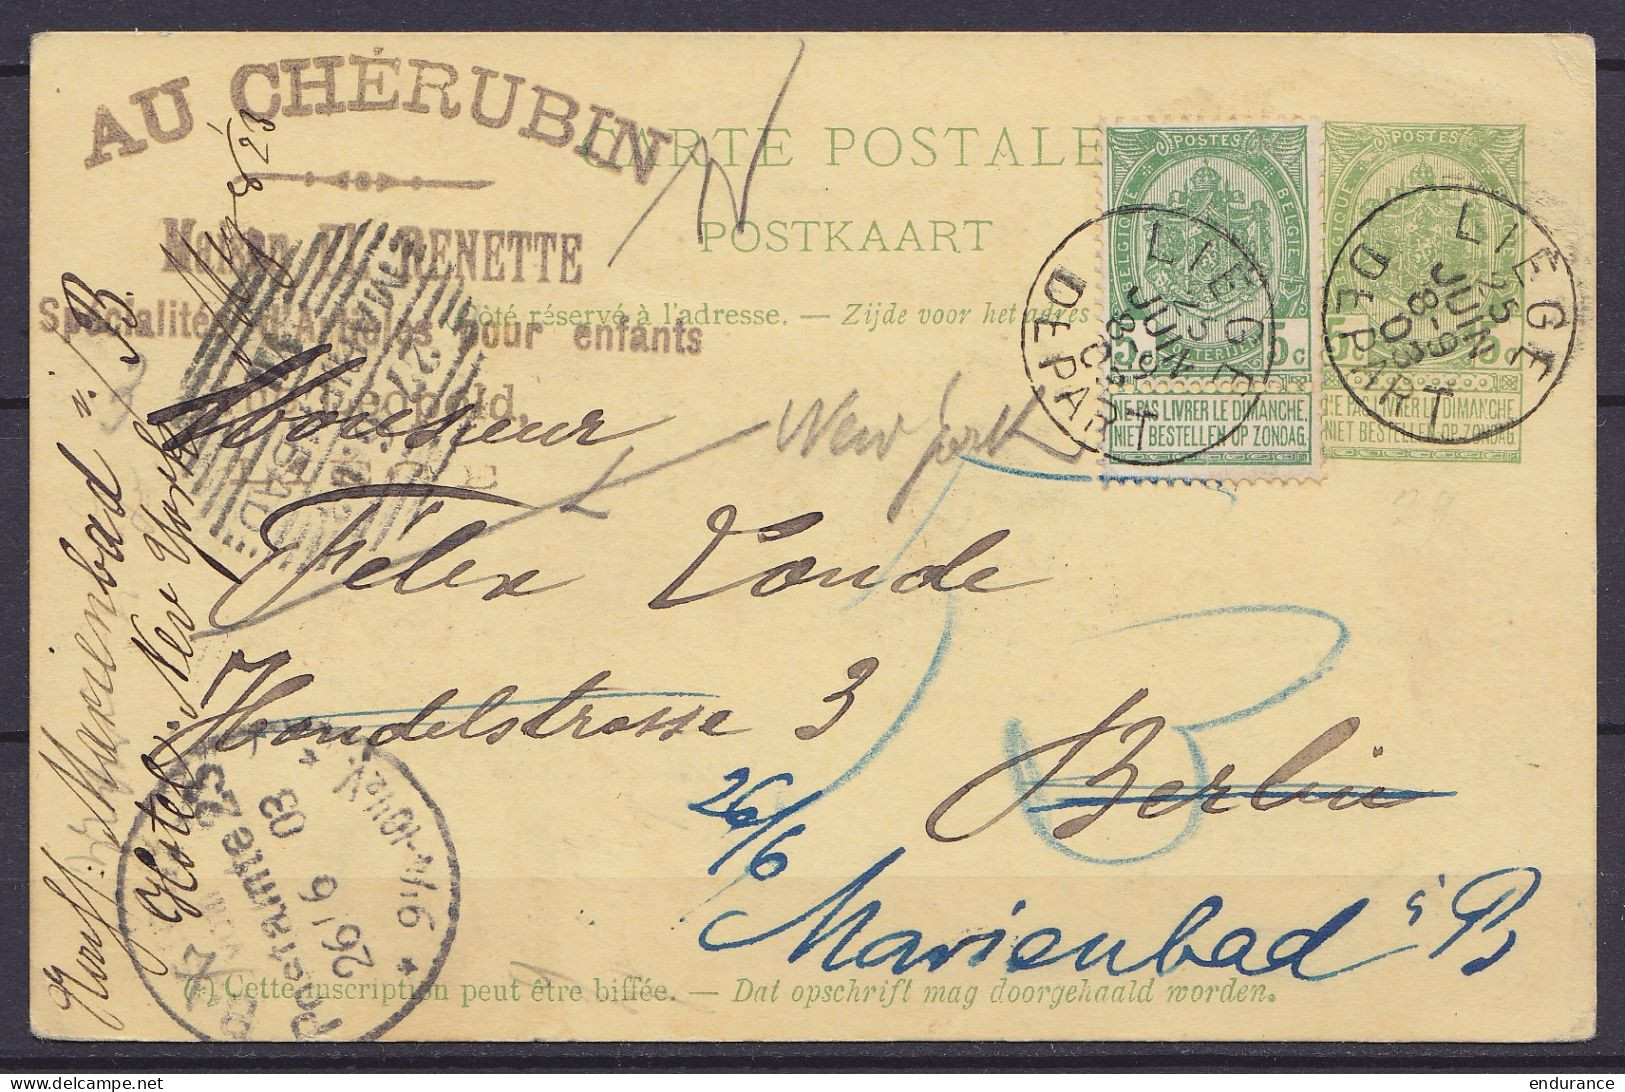 AU CHÉRUBIN
RENETTE
Spécialité d'Articles pour enfants
Léopold,
CARTE POSTALE
POSTKAART
Côté réservé à l'adresse. — Zijde voor het adres
POSTES
BELGIQUE BELGIE
5c 5c
NE PAS LIVRER LE DIMANCHE.
NIET BESTELLEN OP ZONDAG.
POSTES
5c 5c
NE PAS LIVRER LE DIMANCHE.
NIET BESTELLEN OP ZONDAG.
LIEGE
25
JUIN
DEPART
LIEGE
25
JUIN
8-9
03
DEPART
New York
Monsieur
Félix Londe
Handelstrasse 3
Berlin
26/6
Marienbad i/B
Marienbad i/B.
Hotel: New York
26/6
03
9¼-10½V.
(*) Cette inscription peut être biffée. — Dat opschrift mag doorgehaald worden.
endurance
(C) delcampe.net